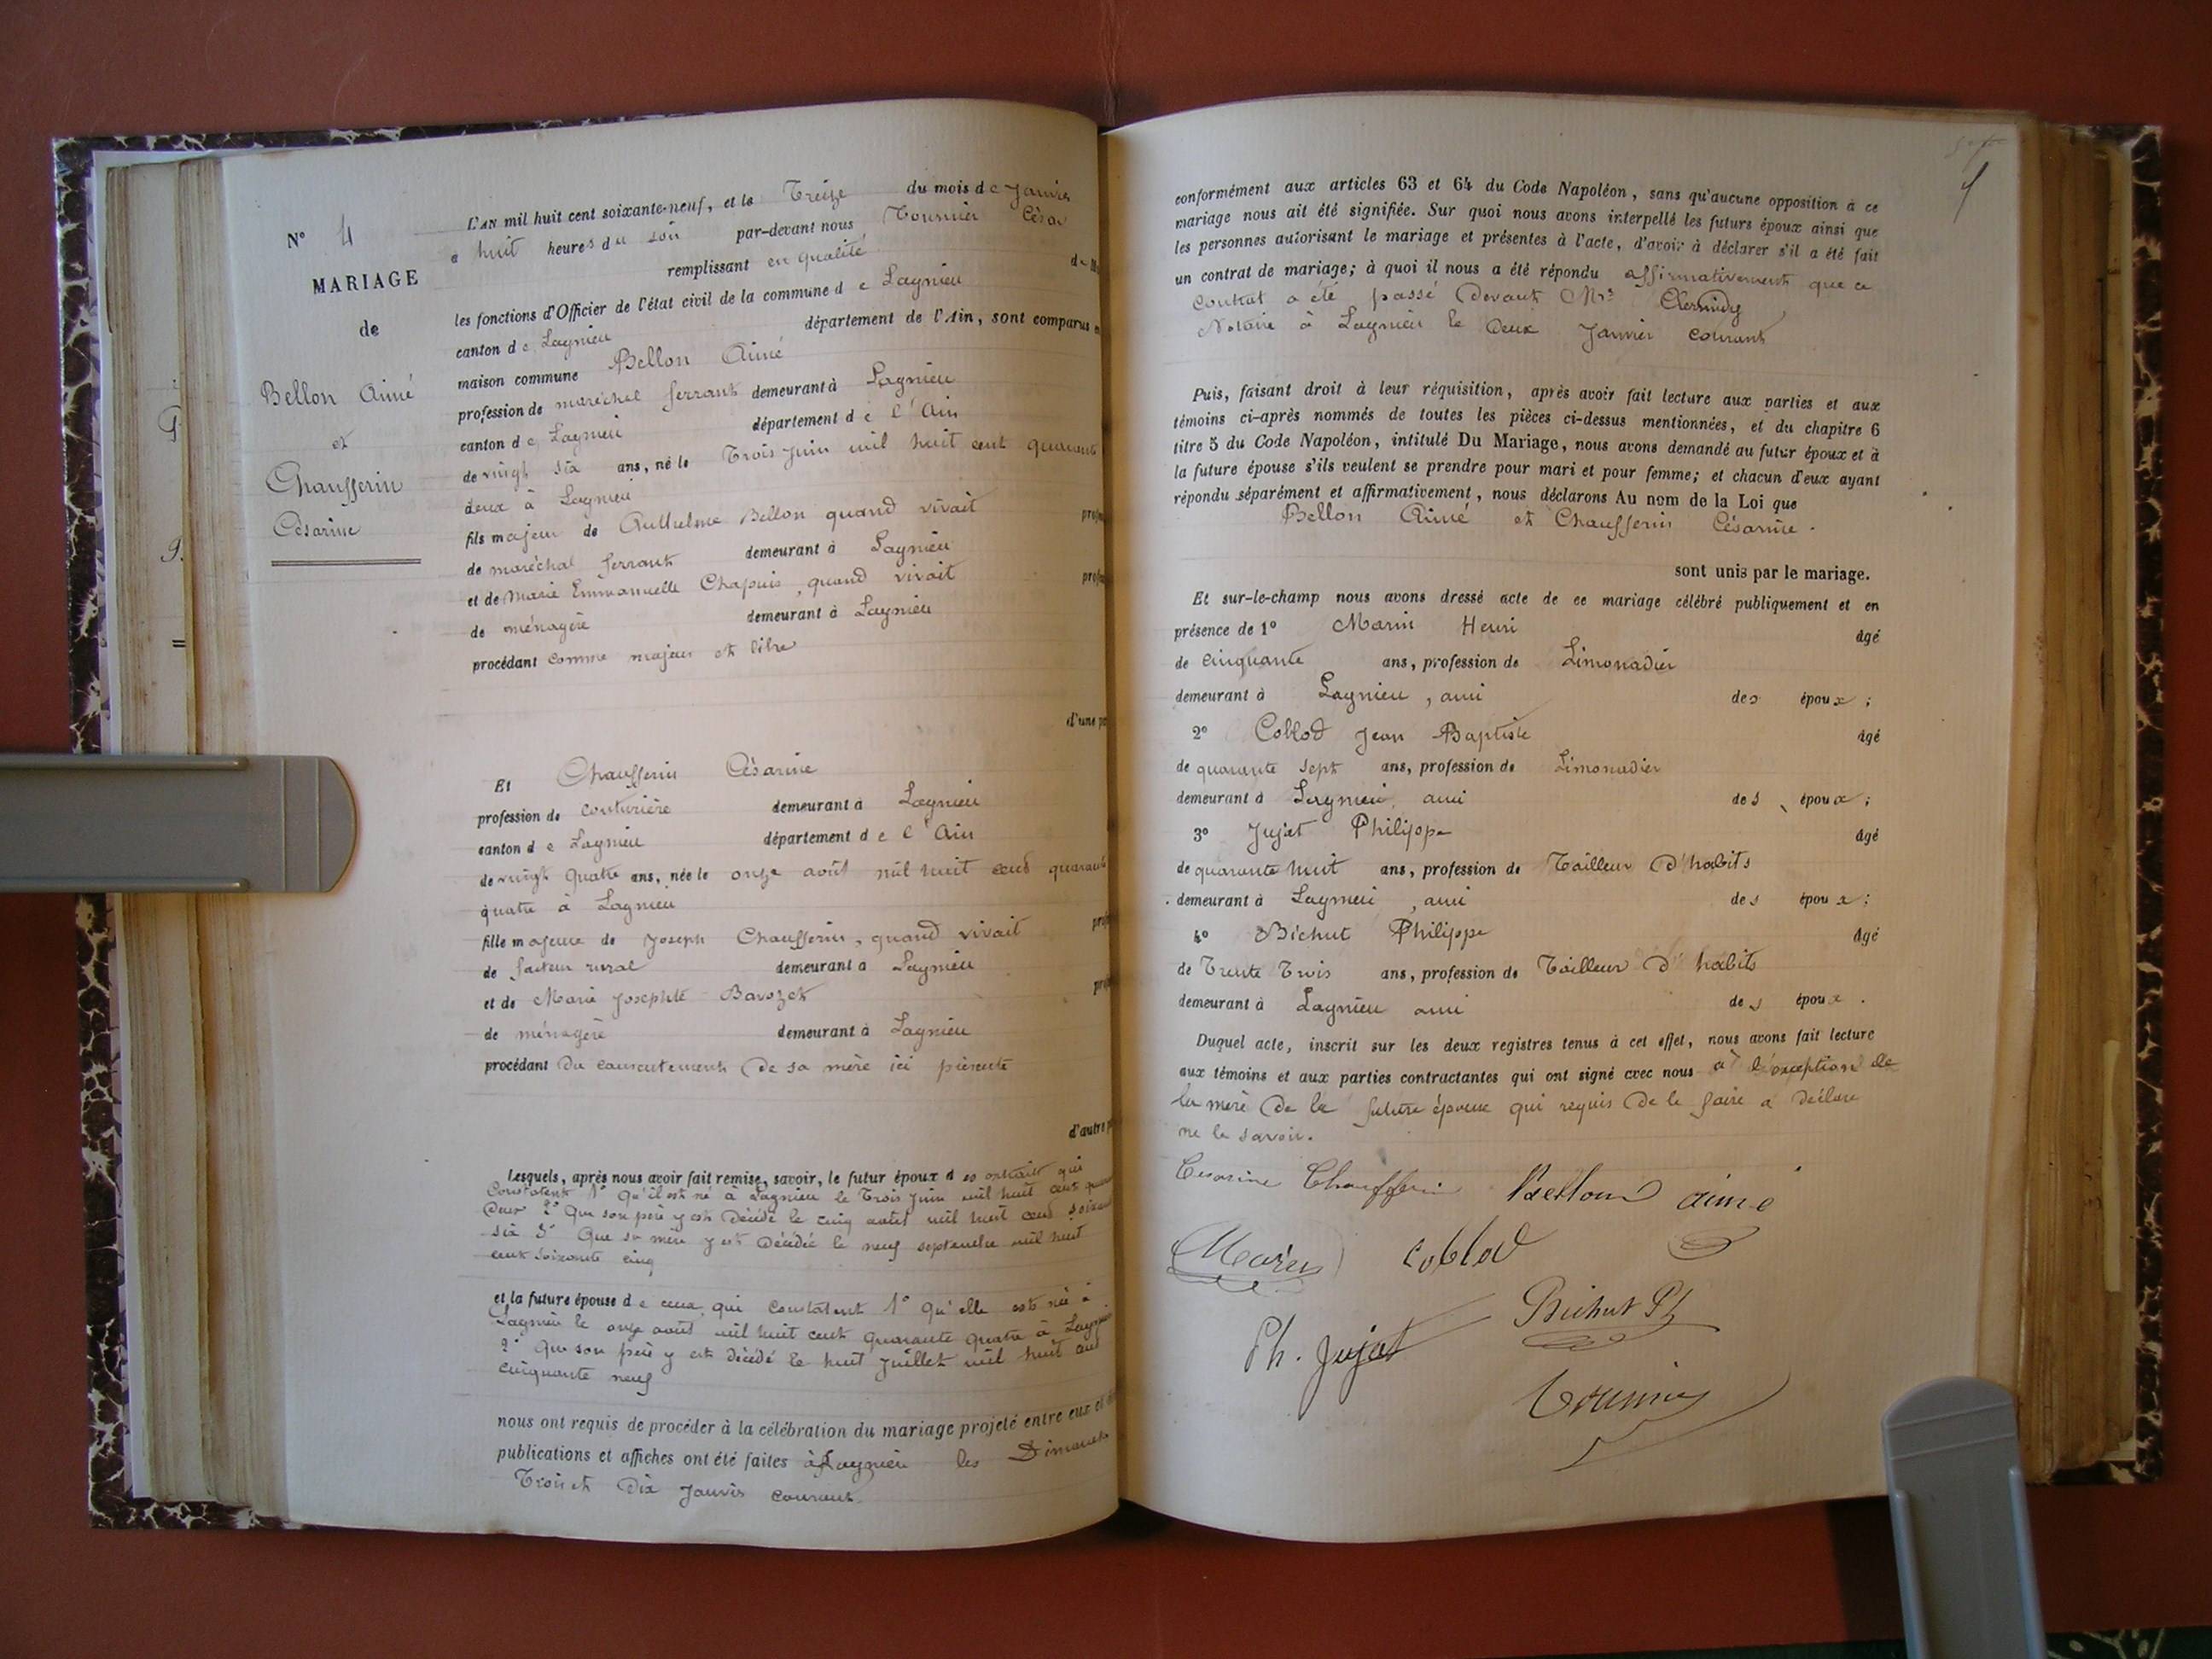 N° 4
MARIAGE
de
Bellon Aimé
et
Chaufferin
Césarine
L'AN mil huit cent soixante-neuf, et le Treize du mois de Janvier
à huit heures du soir par-devant nous Tournier César
remplissant en qualité de
les fonctions d'Officier de l'état civil de la commune de Lagnieu
canton de Lagnieu département de l'Ain, sont comparus en
maison commune Bellon Aimé
profession de maréchal ferrant demeurant à Lagnieu
canton de Lagnieu département de l'Ain
de vingt six ans, né le Trois Juin mil huit cent quarante
deux à Lagnieu
fils majeur de Anthelme Bellon quand vivait
de maréchal ferrant demeurant à Lagnieu
et de Marie Emmanuelle Chapuis, quand vivait
de ménagère demeurant à Lagnieu
procédant comme majeur et libre
d'une
Et Chaufferin Césarine
profession de couturière demeurant à Lagnieu
canton de Lagnieu département de l'Ain
de vingt quatre ans, née le onze août mil huit cent quarante
quatre à Lagnieu
fille majeure de Joseph Chaufferin, quand vivait
de facteur rural demeurant à Lagnieu
et de Marie Josephte Barozet
de ménagère demeurant à Lagnieu
procédant du consentement de sa mère ici présente
d'autre
Lesquels, après nous avoir fait remise, savoir, le futur époux des extraits qui
constatent 1° qu'il est né à Lagnieu le Trois Juin mil huit cent quarante
deux 2° Que son père y est décédé le cinq août mil huit cent soixante
six 3° Que sa mère y est décédée le neuf septembre mil huit
cent soixante cinq
et la future épouse de ceux qui constatent 1° qu'elle est née à
Lagnieu le onze août mil huit cent quarante quatre à Lagnieu
2° Que son père y est décédé le huit Juillet mil huit cent
cinquante neuf
nous ont requis de procéder à la célébration du mariage projeté entre eux et
publications et affiches ont été faites à Lagnieu les Dimanches
Trois et Dix Janvier courant.
conformément aux articles 63 et 64 du Code Napoléon, sans qu'aucune opposition à ce
mariage nous ait été signifiée. Sur quoi nous avons interpellé les futurs époux ainsi que
les personnes autorisant le mariage et présentes à l'acte, d'avoir à déclarer s'il a été fait
un contrat de mariage; à quoi il nous a été répondu affirmativement que ce
contrat a été passé devant Mre
Notaire à Lagnieu le Deux Janvier courant
Puis, faisant droit à leur réquisition, après avoir fait lecture aux parties et aux
témoins ci-après nommés de toutes les pièces ci-dessus mentionnées, et du chapitre 6
titre 5 du Code Napoléon, intitulé Du Mariage, nous avons demandé au futur époux et à
la future épouse s'ils veulent se prendre pour mari et pour femme; et chacun d'eux ayant
répondu séparément et affirmativement, nous déclarons Au nom de la Loi que
Bellon Aimé et Chaufferin Césarine.
sont unis par le mariage.
Et sur-le-champ nous avons dressé acte de ce mariage célébré publiquement et en
présence de 1° Marin Henri âgé
de cinquante ans, profession de Limonadier
demeurant à Lagnieu, ami des époux;
2° Coblod Jean Baptiste âgé
de quarante sept ans, profession de Limonadier
demeurant à Lagnieu, ami des époux;
3° Jujat Philippe âgé
de quarante huit ans, profession de Tailleur d'habits
demeurant à Lagnieu, ami des époux;
4° Bichut Philippe âgé
de Trente Trois ans, profession de Tailleur d'habits
demeurant à Lagnieu ami des époux.
Duquel acte, inscrit sur les deux registres tenus à cet effet, nous avons fait lecture
aux témoins et aux parties contractantes qui ont signé avec nous à l'exception de
la mère de la future épouse qui requis de le faire a déclaré
ne le savoir.
Cesarine Chaufferin Bellond aimé
Marin Coblod
Ph. Jujat Bichut Ph
Tournier